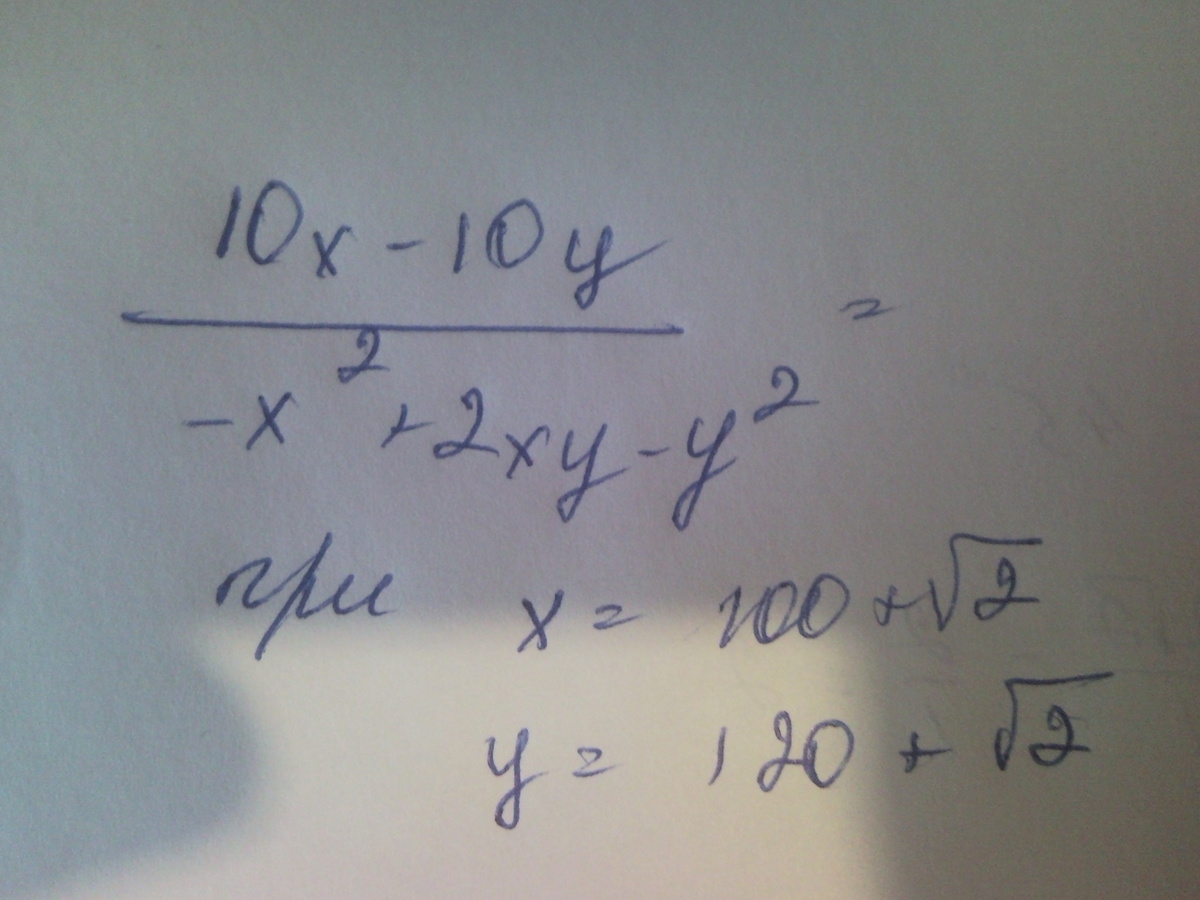 10x - 10y
=
-x² + 2xy - y²
при x = 100 + √2
y = 120 + √2